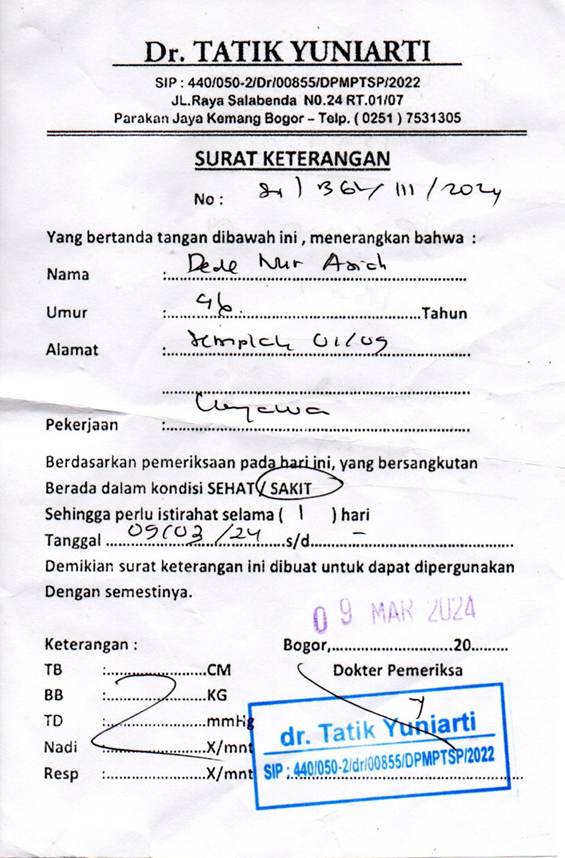 Dr. TATIK YUNIARTI
SIP : 440/050-2/Dr/00855/DPMPTSP/2022
JL.Raya Salabenda N0.24 RT.01/07
Parakan Jaya Kemang Bogor – Telp. ( 0251 ) 7531305
SURAT KETERANGAN
No : / III / 2024
Yang bertanda tangan dibawah ini , menerangkan bahwa :
Nama : Dede Nur
Umur : Tahun
Alamat :
Pekerjaan :
Berdasarkan pemeriksaan pada hari ini, yang bersangkutan
Berada dalam kondisi SEHAT / SAKIT
Sehingga perlu istirahat selama ( 1 ) hari
Tanggal 09/03/24 s/d –
Demikian surat keterangan ini dibuat untuk dapat dipergunakan
Dengan semestinya.
09 MAR 2024
Keterangan : Bogor,....................20.........
TB :......................CM Dokter Pemeriksa
BB :......................KG
TD :......................mmHg
Nadi :......................X/mnt
Resp :......................X/mnt
dr. Tatik Yuniarti
SIP : 440/050-2/dr/00855/DPMPTSP/2022